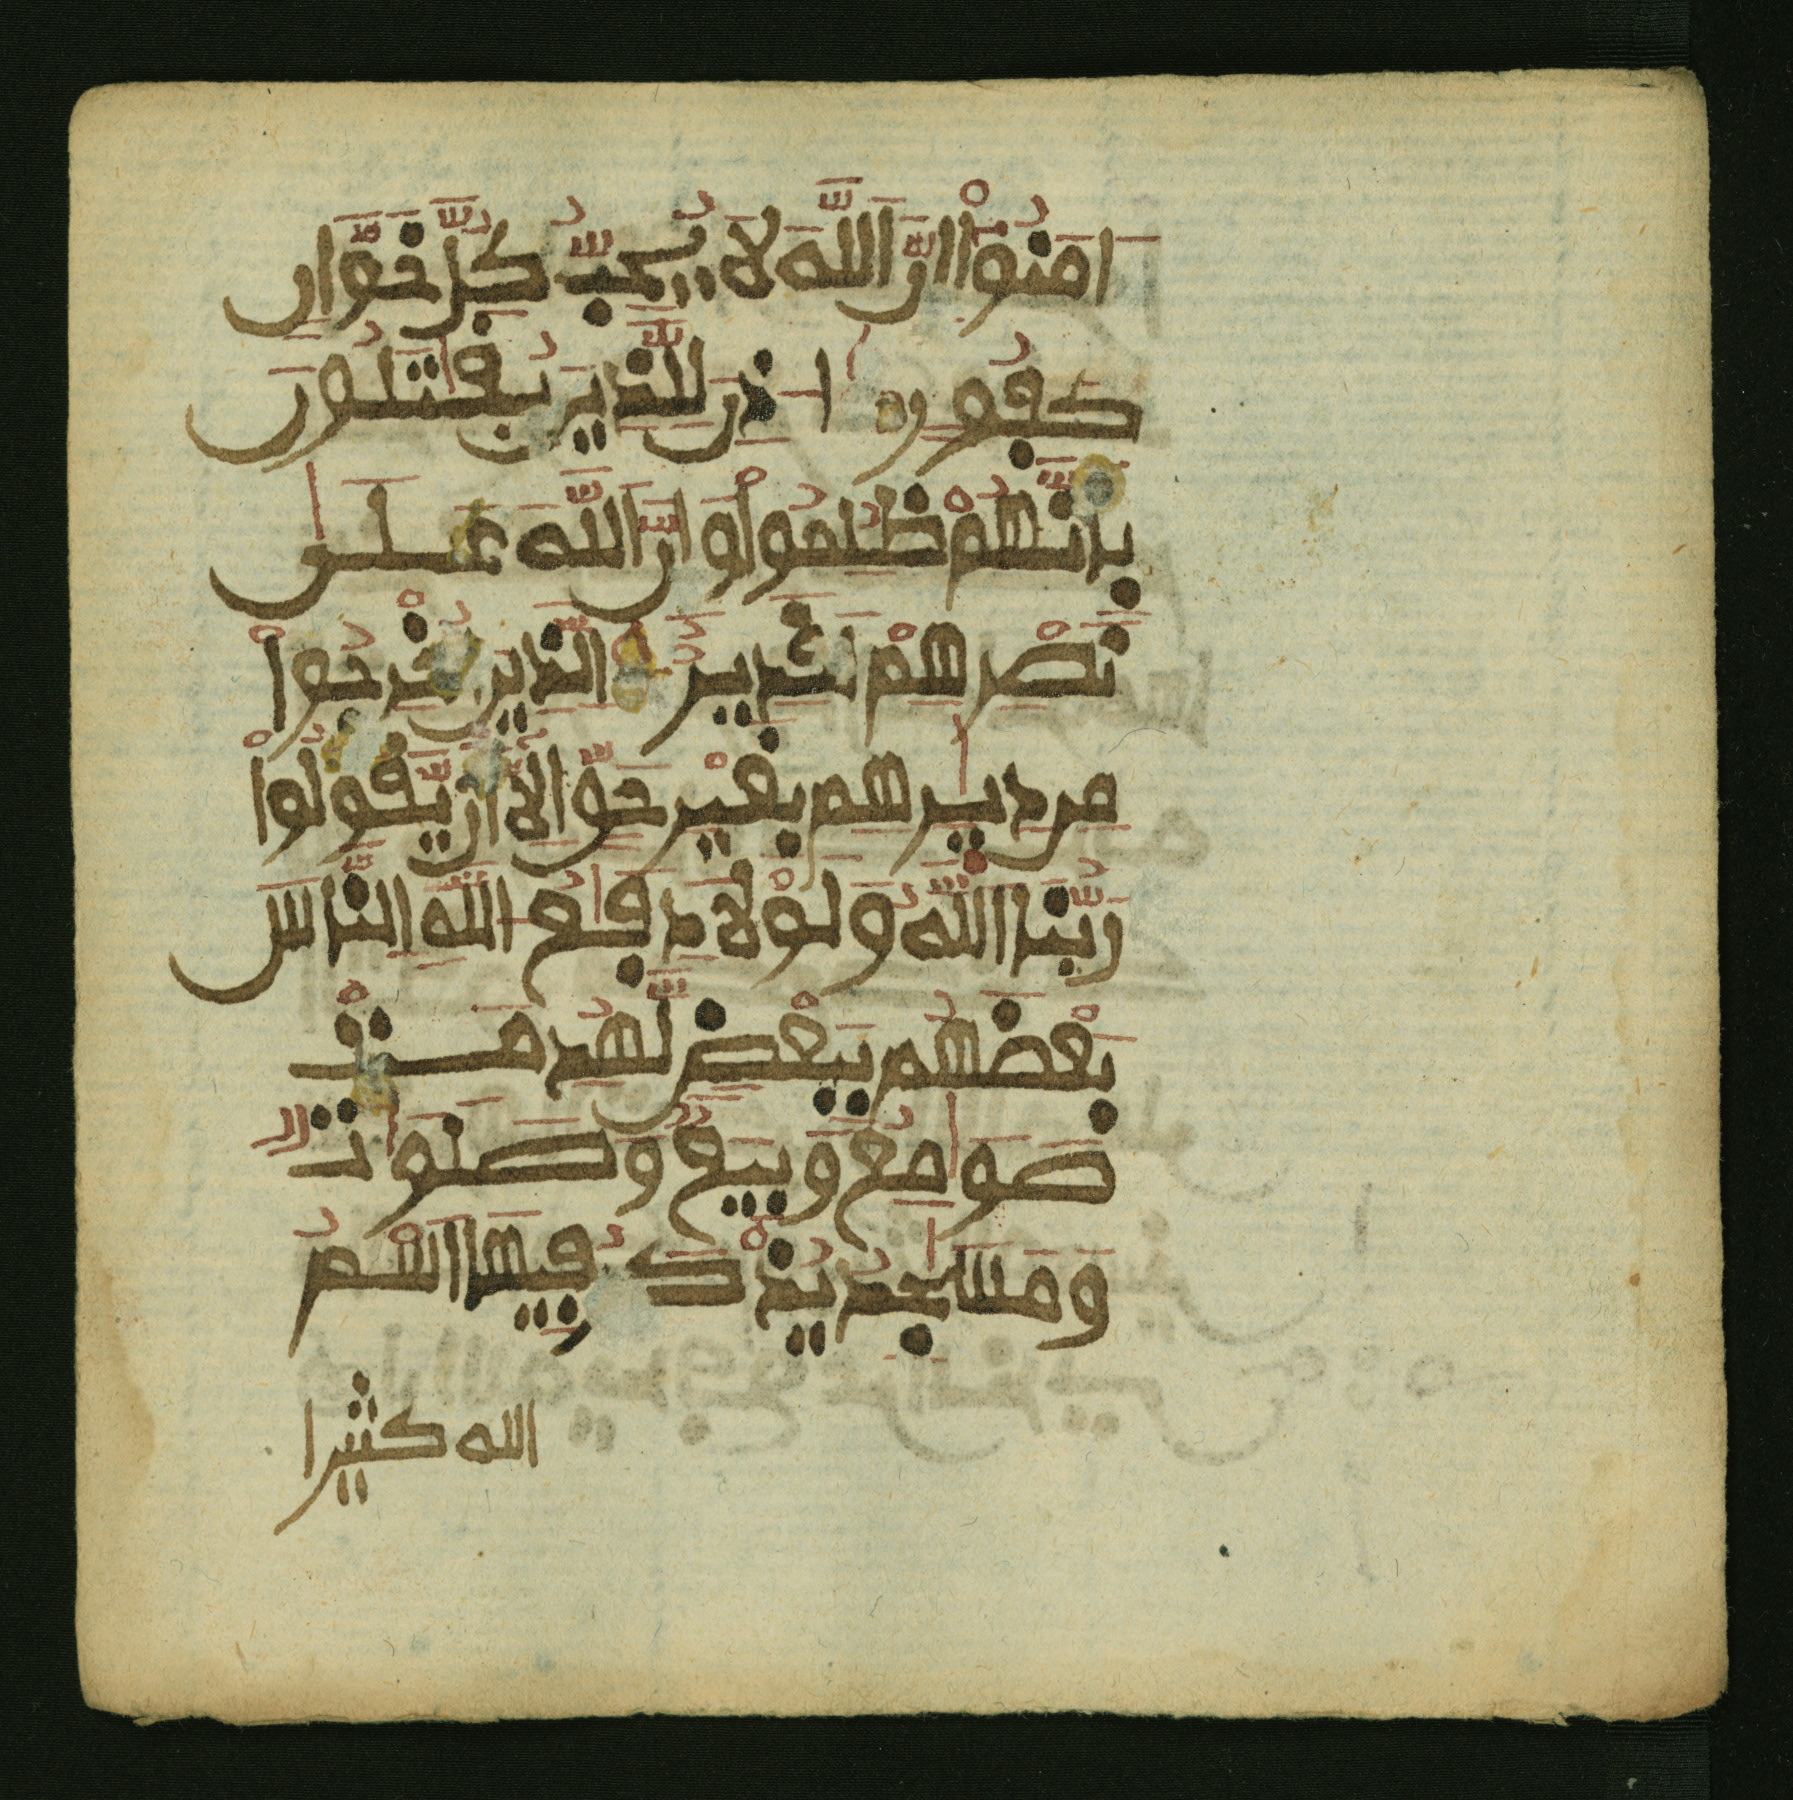 ءَامَنُوْا إِنَّ اللَّهَ لَا يُحِبُّ كُلَّ خَوَّانٍ
كَفُورٍ ۝ اذِنَ لِلَّذِينَ يُقَٰتَلُونَ
بِأَنَّهُمْ ظُلِمُوا وَإِنَّ اللَّهَ عَلَىٰ
نَصْرِهِمْ لَقَدِيرٌ ۝ الَّذِينَ أُخْرِجُوا
مِن دِيَٰرِهِم بِغَيْرِ حَقٍّ إِلَّا أَن يَّقُولُوا
رَبُّنَا اللَّهُ وَلَوْلَا دِفَٰعُ اللَّهِ النَّاسَ
بَعْضَهُم بِبَعْضٍ لَّهُدِمَتْ
صَوَٰمِعُ وَبِيَعٌ وَصَلَوَٰتٌ
وَمَسَٰجِدُ يُذْكَرُ فِيهَا اسْمُ
الله كثيرا